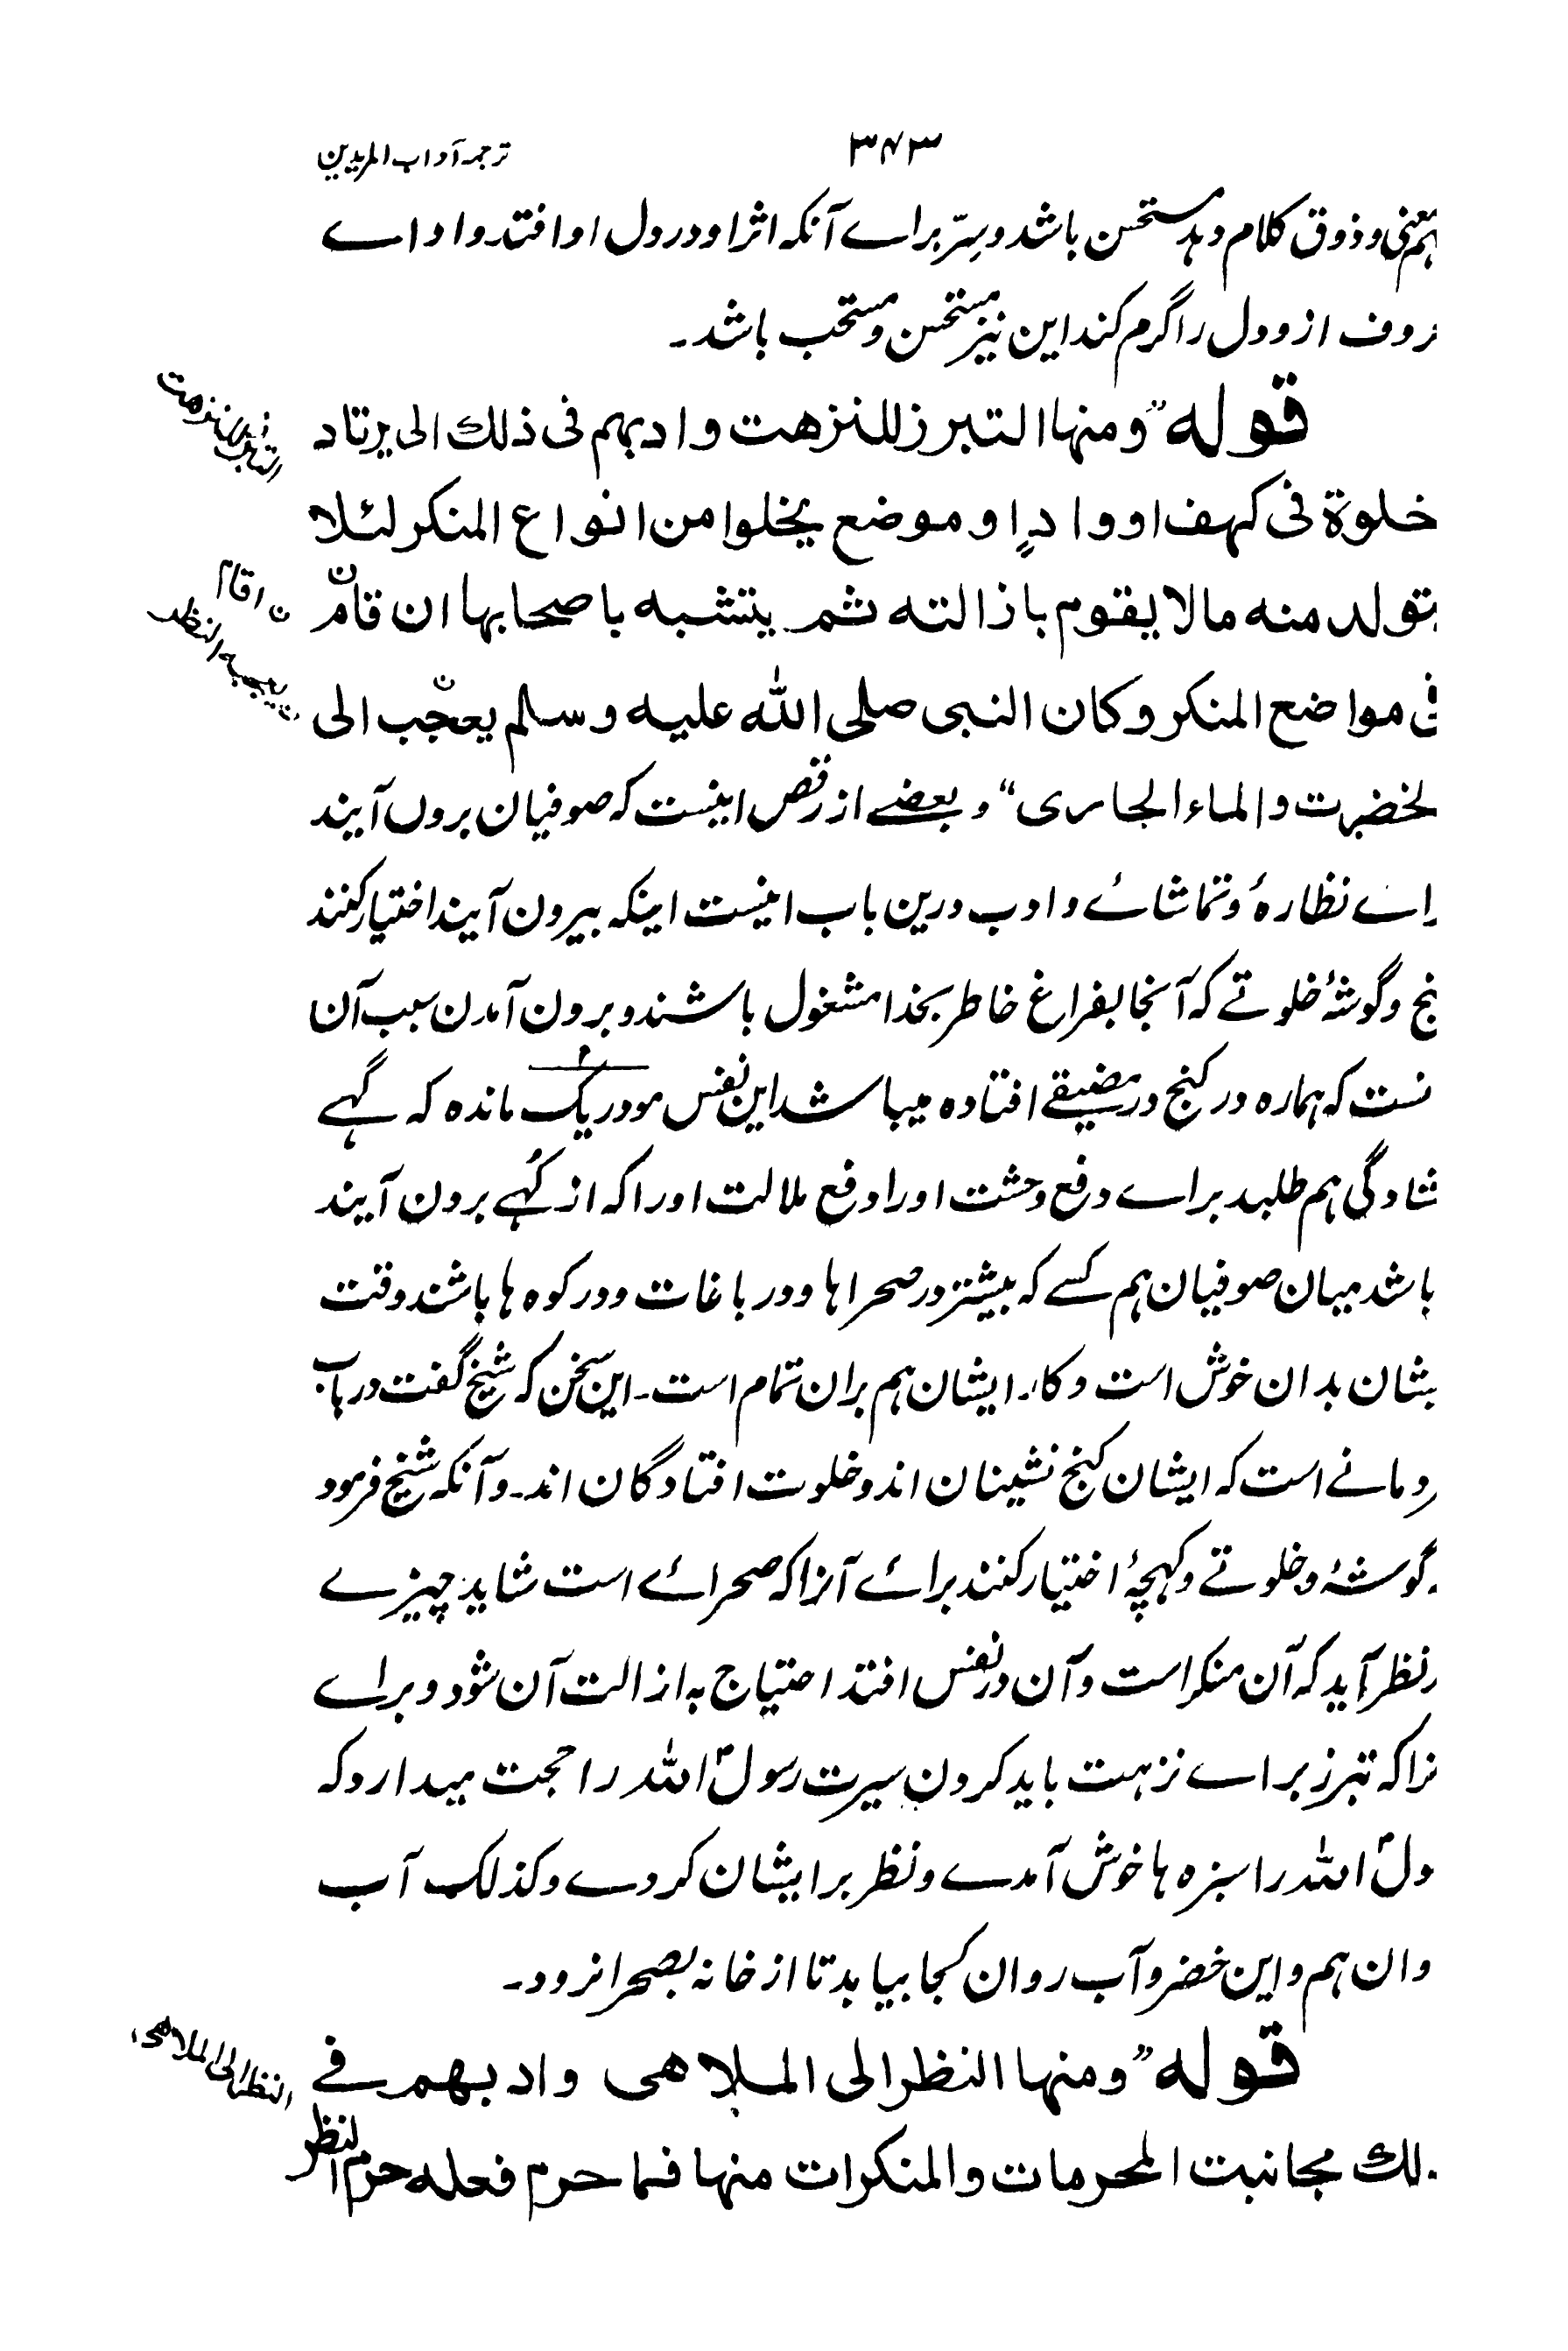 ترجمہ آداب المریدین
۳۴۳
ہم معنی و ذوق کلام دہد مستحسن باشد و سِرّ برائے آنکہ اثر او در دل او افتد و ادائے
از و دل را گرم کند این نیز مستحسن و مستحب باشد۔
قوله ”ومنها التبرز للنزهت وادبهم فی ذلك الی یرتاد
خلوة فی کهف او وادٍ او موضع یخلوا من انواع المنکر لئلا
یتولد منه ما لا یقوم بازالته ثم یتشبه باصحابها ان قامن
فی مواضع المنکر وکان النبی صلی الله علیه وسلم یعجّب الی
الخضرت والماء الجاری“ و بعضے از رخص اینست کہ صوفیان بروں آیند
برائے نظارۂ و تماشائے و ادب درین باب اینست اینکہ بیرون آیند اختیار کنند
کنج و گوشۂ خلوتے کہ آنجا بفراغ خاطر بخدا مشغول باشند و برون آمدن سبب آن
است کہ ہمارہ در کنج در مضیقے افتادہ میباشد این نفس مودریک ماندہ کہ گہے
کشادگی ہم طلبد برائے دفع وحشت اورا دفع ملالت اورا کہ از کُہے برون آیند
باشد میان صوفیان ہم کسے کہ بیشتر در صحراہا و در باغات و در کوہ ہا باشند وقت
ایشان بدان خوش است و کار ایشان ہم بران تمام است۔ این سخن کہ شیخ گفت در باب
مردمانے است کہ ایشان کنج نشینان اند و خلوت افتادگان اند۔ و آنکہ شیخ فرمود
گوشۂ و خلوتے و کہچۂ اختیار کنند برائے آنرا کہ صحرائے است شاید چیزے
در نظر آید کہ آن منکر است و آن در نفس افتد احتیاج بہ ازالت آن شود و برائے
آنرا کہ تبرز برائے نزہت باید کردن سیرت رسولؐ اللہ را حجت میدارد کہ
رسولؐ اللہ را سبزہ ہا خوش آمدے و نظر برایشان کردے و کذلک آب
روان ہم و این خضر و آب روان کجا بیابد تا از خانہ بصحرا نرود۔
قوله ”ومنها النظر الی الملاهی وادبهم فے
ذلك مجانبت المحرمات والمنکرات منها فما حرم فعله حرم النظر
التبرز للنزهت
ن اقام
ن یعجبه النظر
النظر الی الملاهی